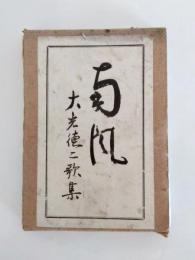 南風
大岩徳二歌集